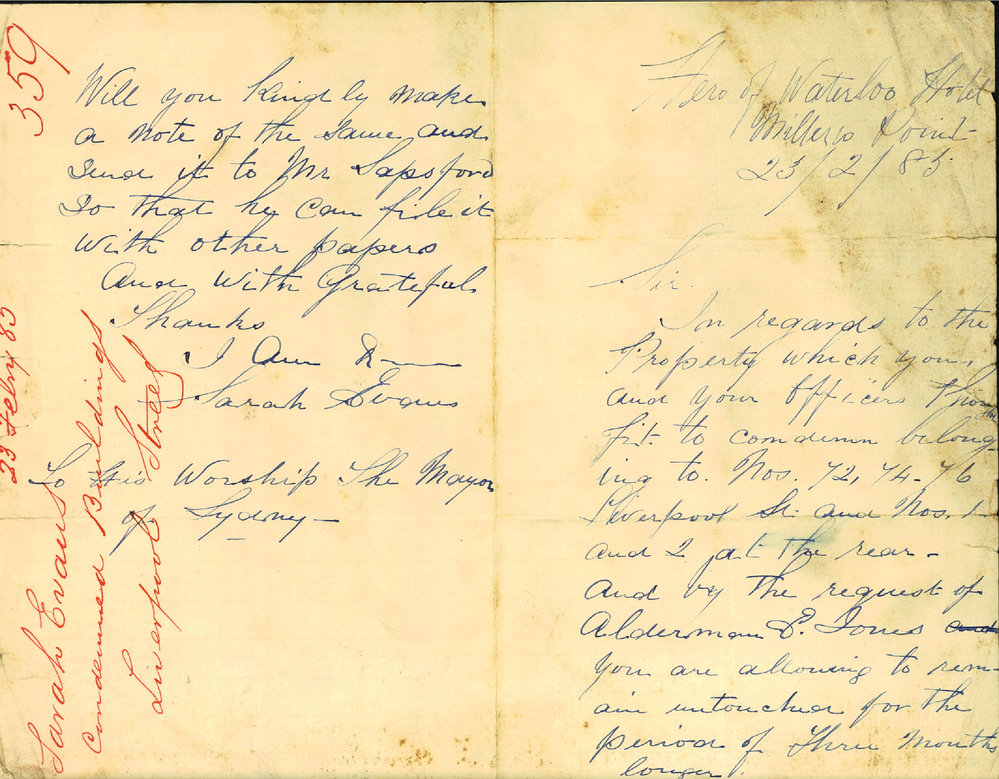 Hero of Waterloo Hotel
Millers Point
23/2/85
Sir.
In regards to the
Property which you,
and your Officers
fit to condemn belong-
ing to. Nos. 72, 74 - 76
Liverpool St. and Nos. 1
and 2 at the rear -
and by the request of
Alderman Jones and
you are allowing to rem-
ain untouched for the
period of three Months
longer.
Will you kindly make
a note of the same and
send it to Mr Sapsford
so that he can file it
with other papers
And with Grateful
Thanks
I Am
Sarah Evans
To His Worship The Mayor
of Sydny -
359
23 Febry 85
Sarah Evans
Condemned Buildings
Liverpool Street